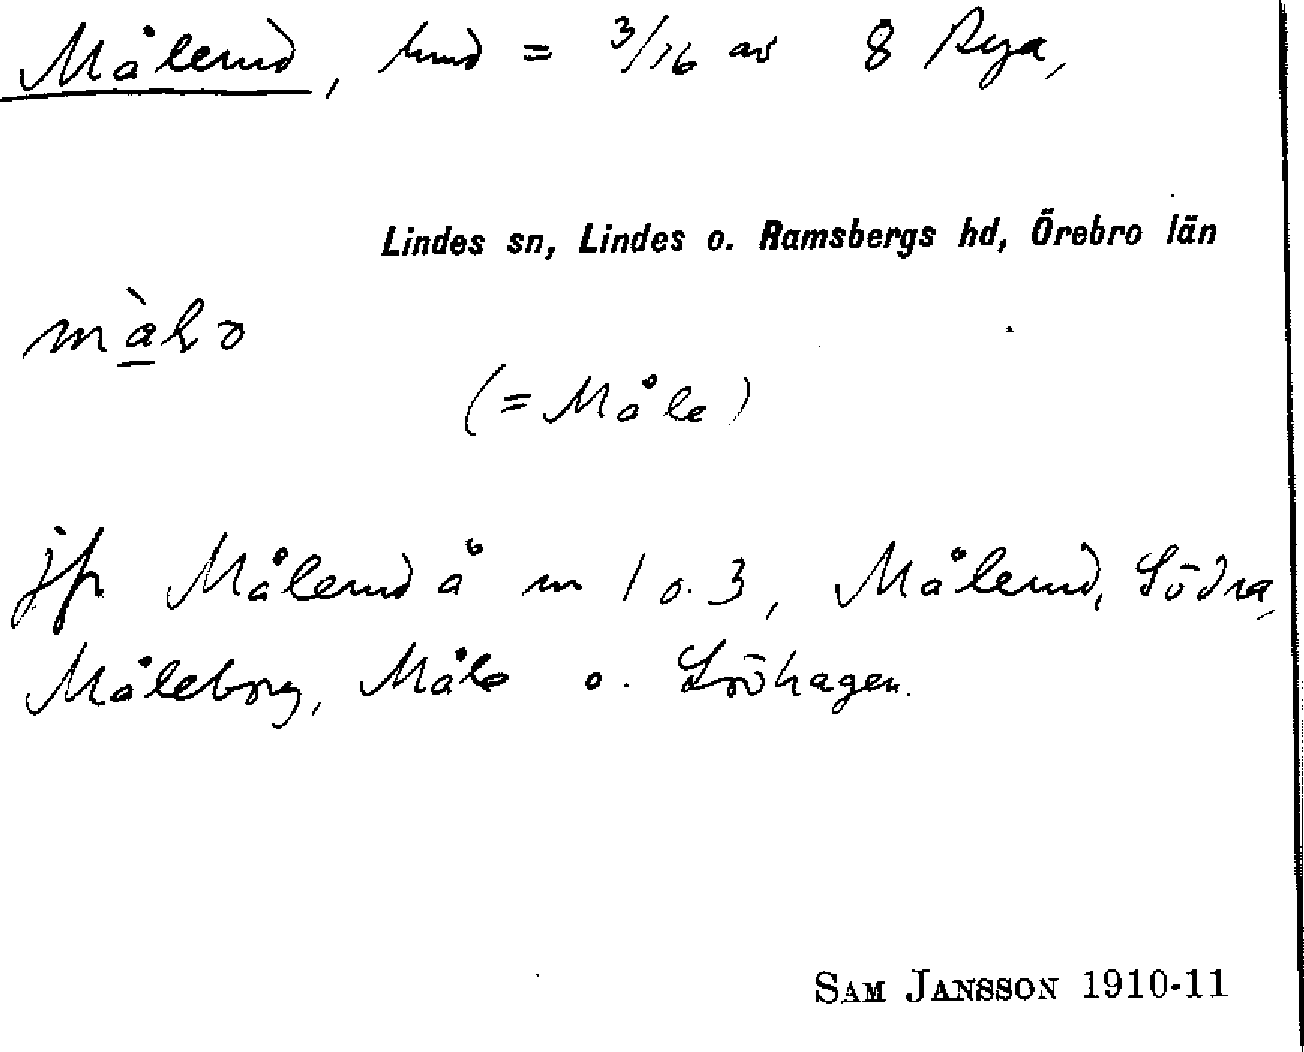 Målerud, hmd = 3/16 av 8 Rya,
Lindes sn, Lindes o. Ramsbergs hd, Örebro län
(= Måle)
jfr Målerud å nr 1 o. 3, Målerud, Södra,
Måleborg, Måle o. Lövhagen.
SAM JANSSON 1910-11